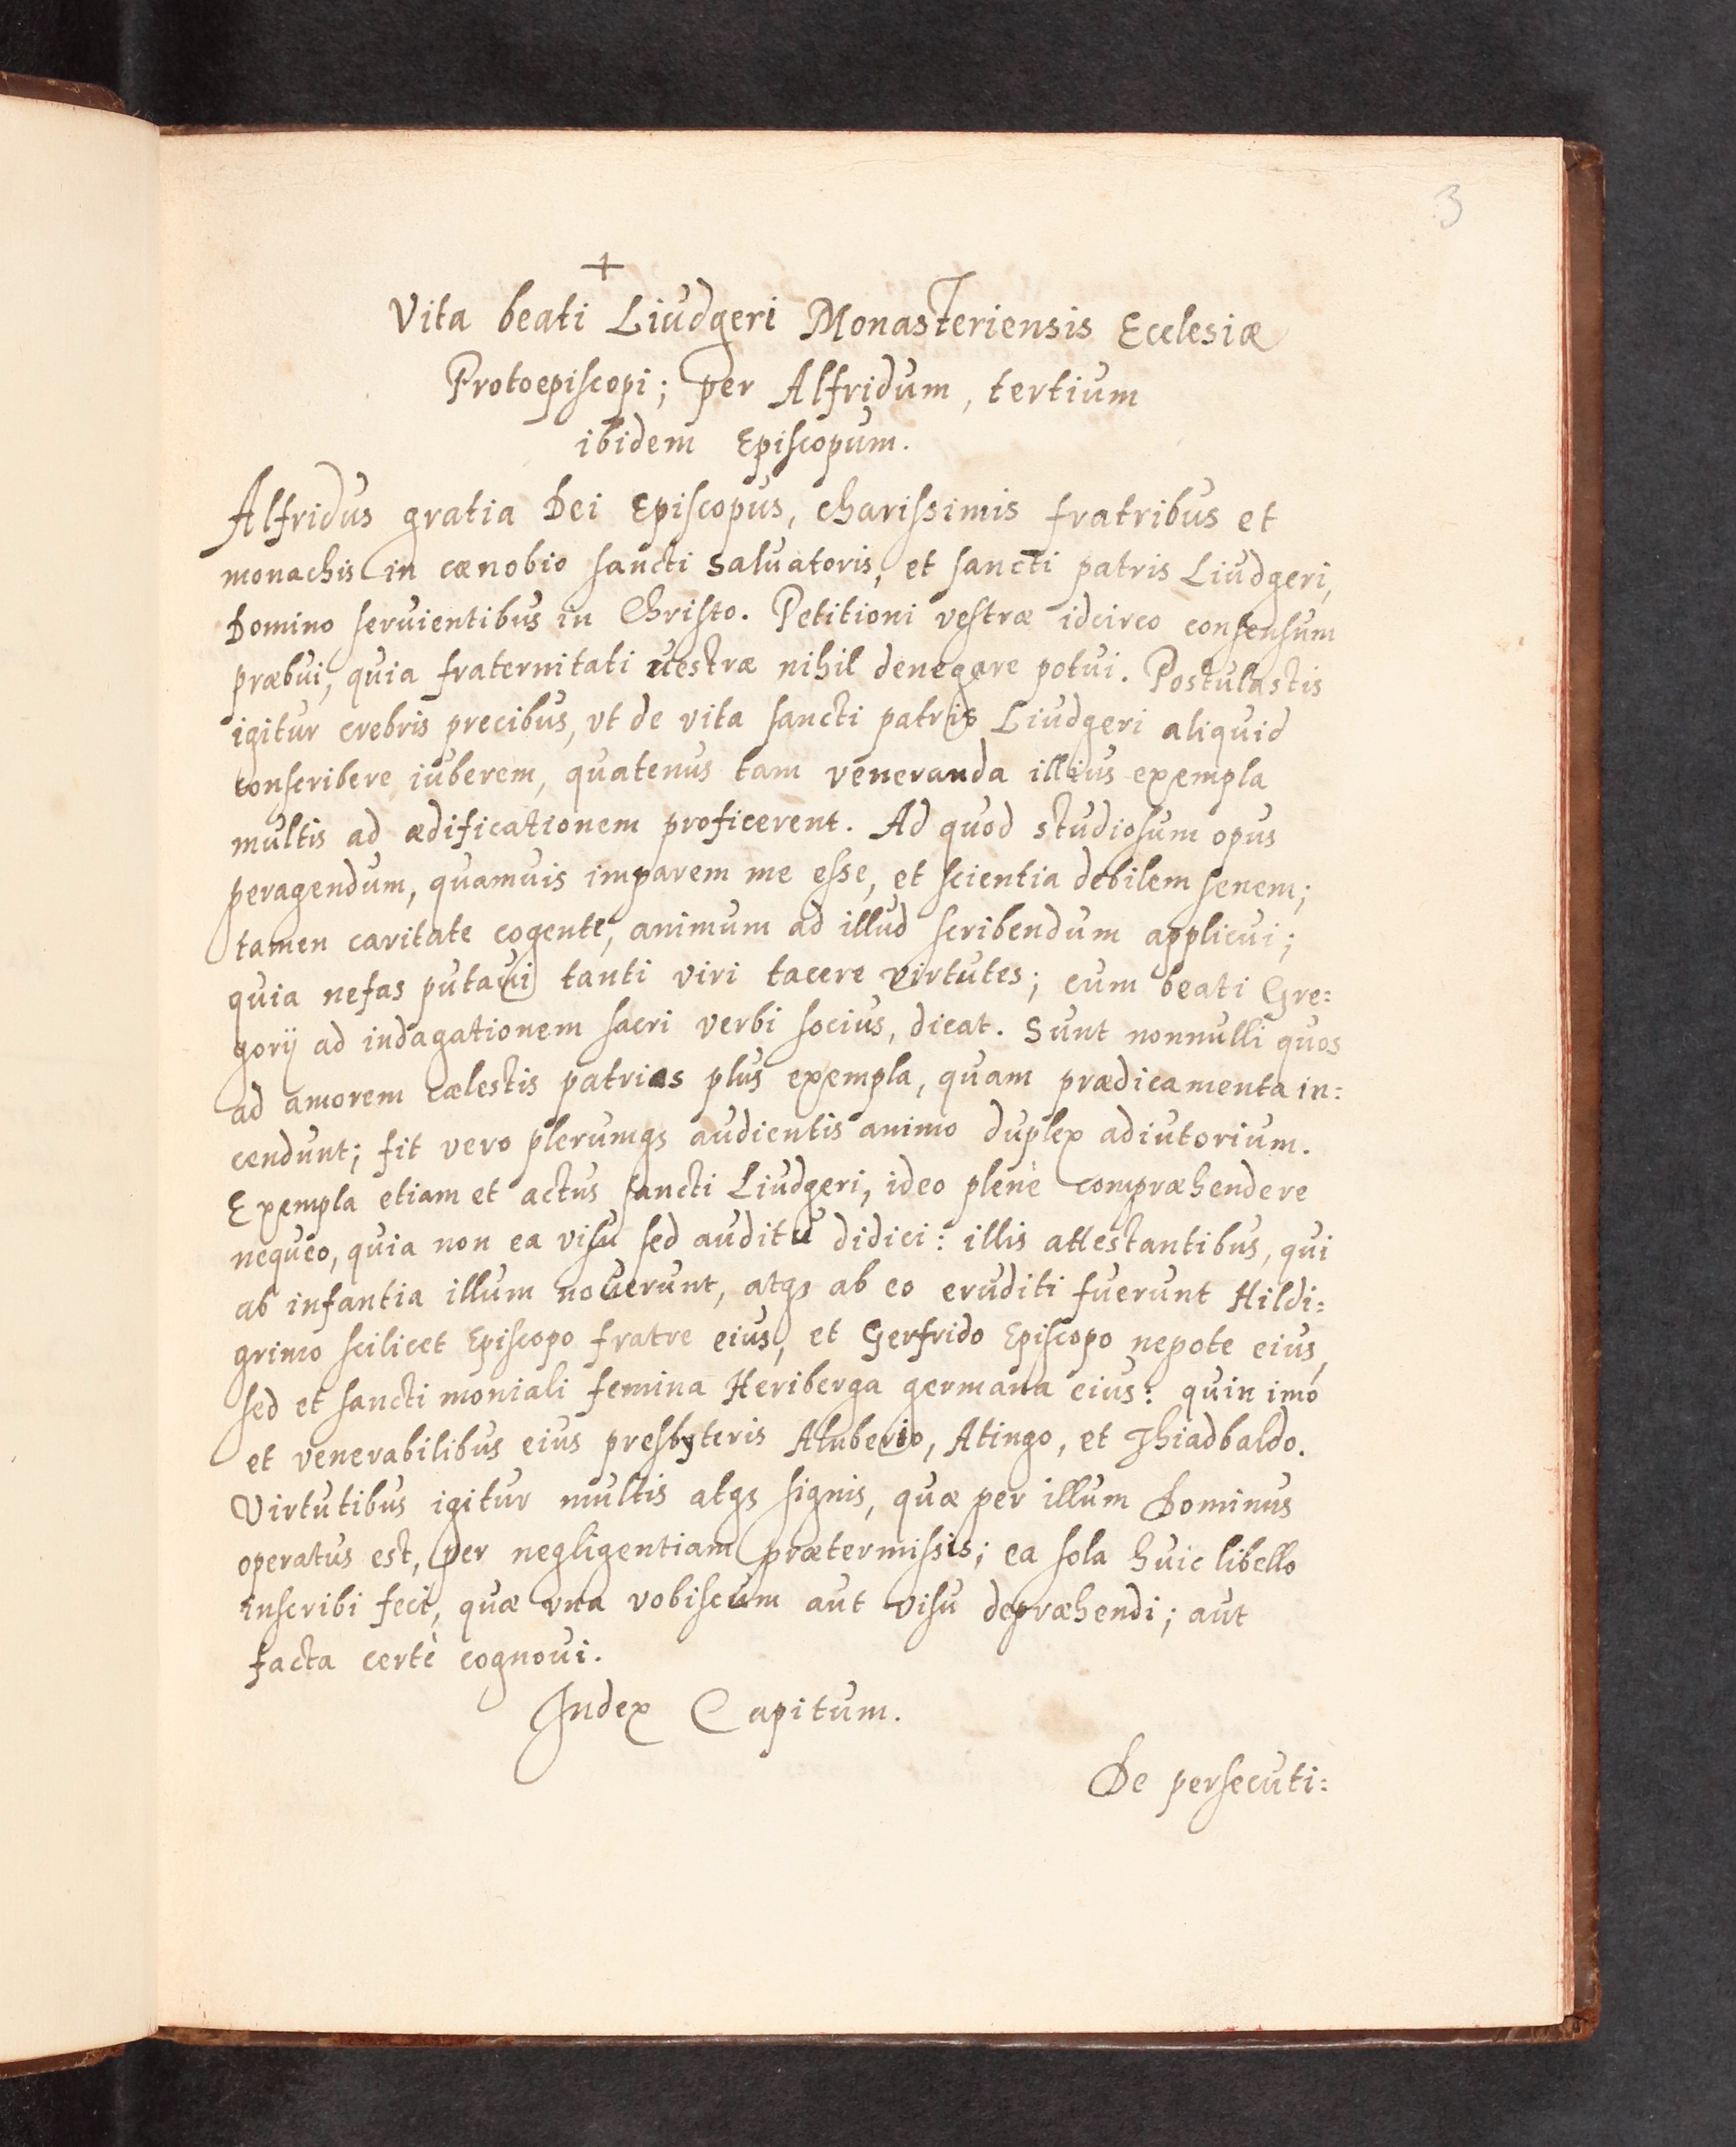 3
+
Vita beati Liudgeri Monasteriensis Ecclesiæ
Protoepiscopi; per Alfridum, tertium
ibidem Episcopum.
Alfridus gratia Dei Episcopus, charissimis fratribus et
monachis in cænobio sancti Saluatoris, et sancti patris Liudgeri,
Domino seruientibus in Christo. Petitioni vestræ idcirco consensum
præbui, quia fraternitati uestræ nihil denegare potui. Postulastis
igitur crebris precibus, vt de vita sancti patris Liudgeri aliquid
conscribere iuberem, quatenus tam veneranda illius exempla
multis ad ædificationem proficerent. Ad quod studiosum opus
peragendum, quamuis imparem me esse, et scientia debilem senem;
tamen caritate cogente, animum ad illud scribendum applicui;
quia nefas putaui tanti viri tacere virtutes; cum beati Gre=
gorij ad indagationem sacri verbi socius, dicat. Sunt nonnulli quos
ad amorem cælestis patrias plus exempla, quam prædicamenta in=
cendunt; fit vero plerumqs audientis animo duplex adiutorium.
Exempla etiam et actus sancti Liudgeri, ideo plenè compræhendere
nequeo, quia non ea visu sed auditu didici: illis attestantibus, qui
ab infantia illum nouerunt, atqs ab eo eruditi fuerunt Hildi=
grimo scilicet Episcopo fratre eius, et Gerfrido Episcopo nepote eius,
sed et sancti moniali femina Heriberga germana eius: quin imò
et venerabilibus eius presbyteris Aluberio, Atingo, et Thiadbaldo.
Virtutibus igitur multis atqs signis, quæ per illum Dominus
operatus est, per negligentiam prætermissis; ea sola huic libello
inscribi feci, quæ vna vobiscum aut visu depræhendi; aut
facta certè cognoui.
Index Capitum.
De persecuti=